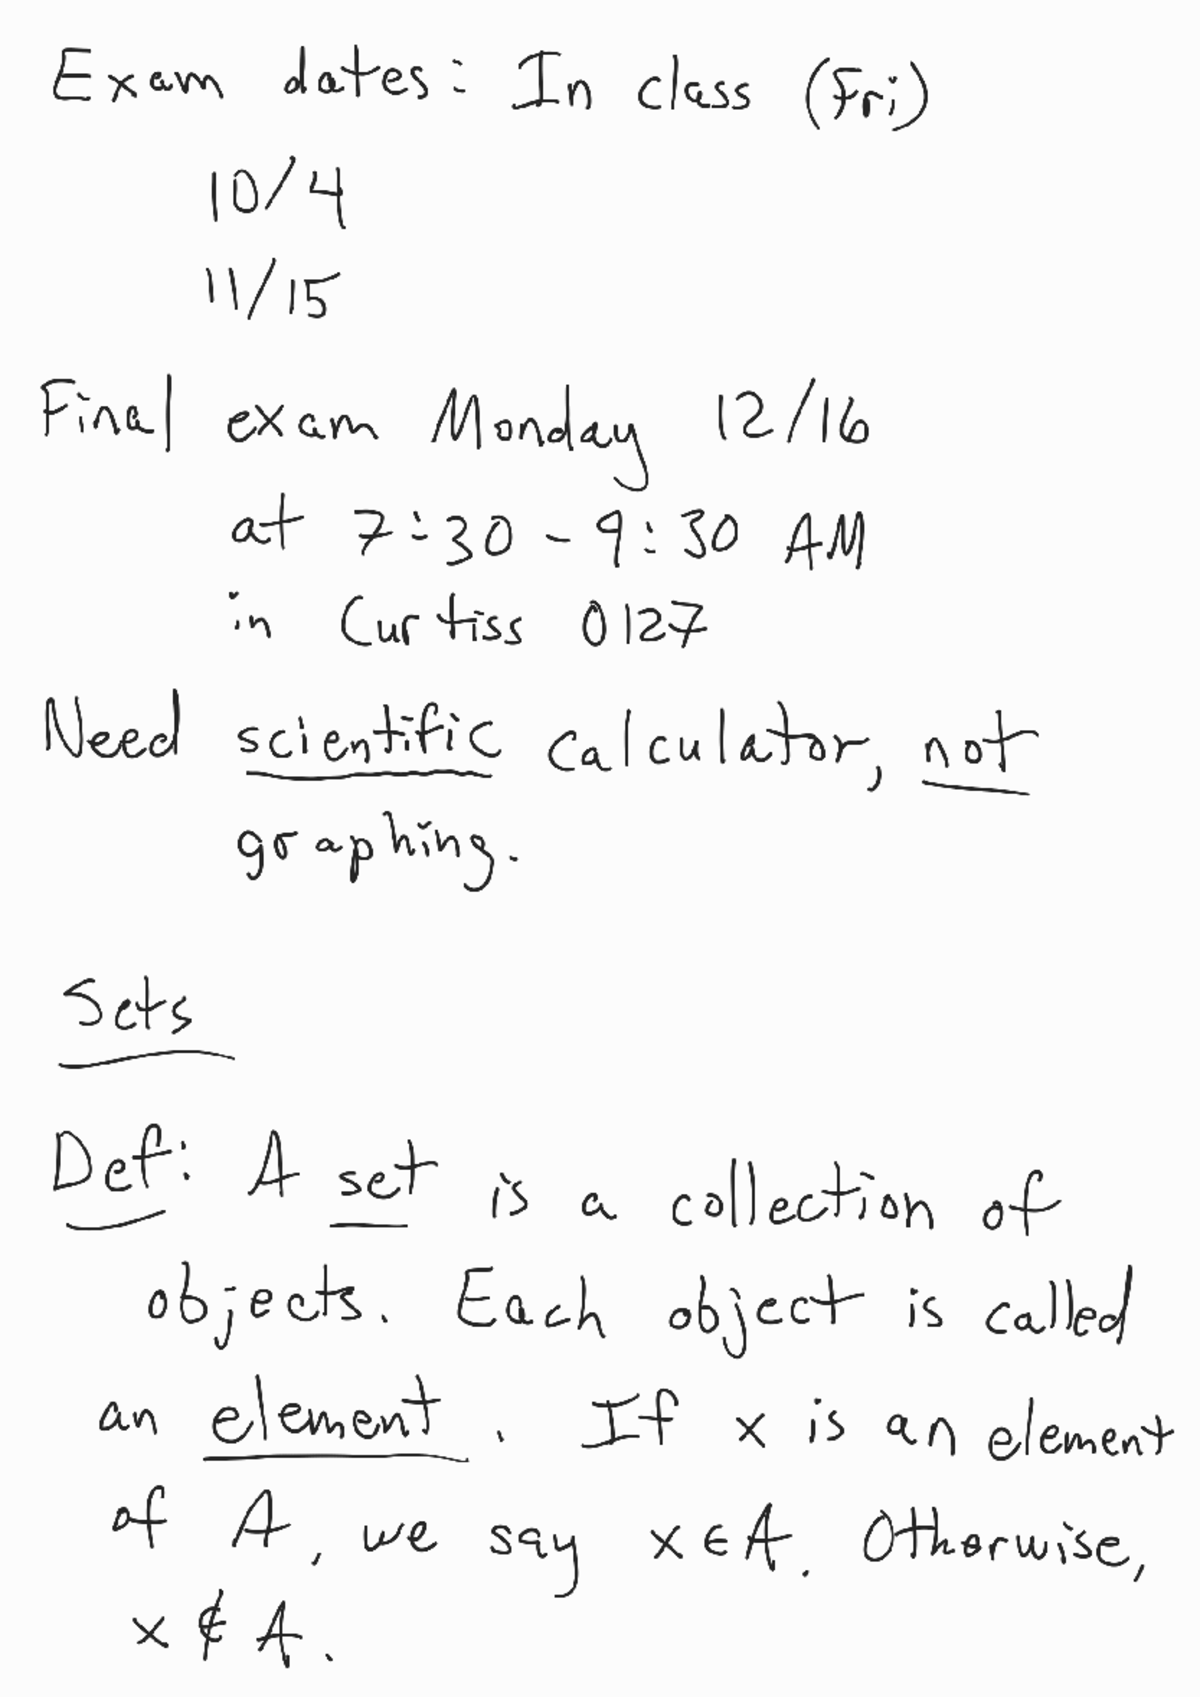 Exam dates: In class (Fri)
10/4
11/15
Final exam Monday 12/16
at 7:30 - 9:30 AM
in Curtiss 0127
Need scientific calculator, not
graphing.
Sets
Def: A set is a collection of
objects. Each object is called
an element. If x is an element
of A, we say x ∈ A. Otherwise,
x ∉ A.